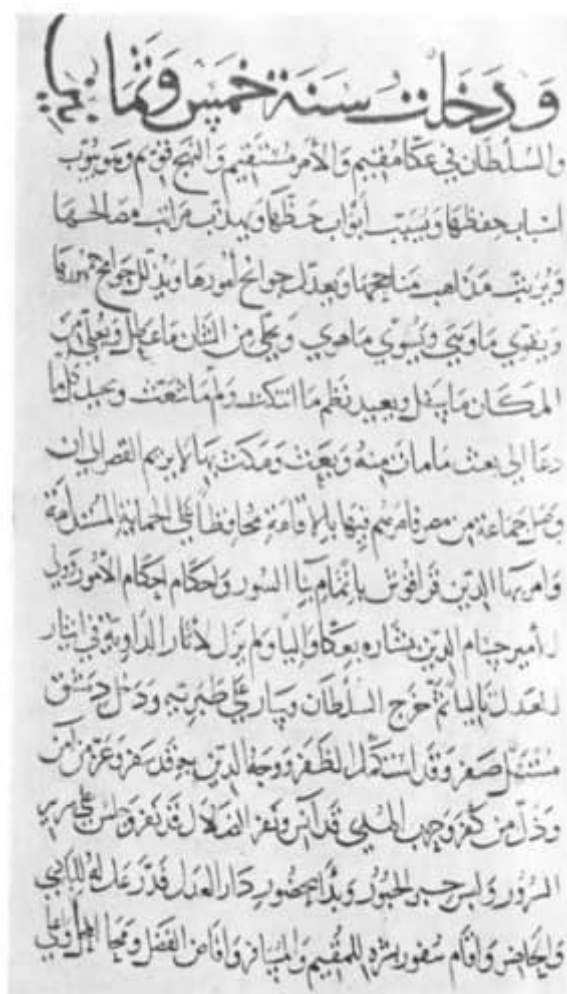 وَدَخَلَت سَنَة خَمْسٍ وَثَمَا
والسُلطان في عكا مُقيم والأمر مُستَقيم والنهج قويم وهو يبوب
اسباب حفظها ويسبب أبواب حظها ويهذب مراتب مصالحها
ويرتب مذاهب مناجحها ويعدل جوانح أمورها ويذلل جوامح جمهورها
ويقوي ما وهي ويسوي ما هوي ويحلي من الشان ما عطل ويعلي من
المكان ما يسفل ويعيد نظم ما انتكث ولم ما تشعث
دعا الي بعث ما مات منه وبعث ومكث بها لا يريم القصر الي ان
وصل جماعة من مصر فامرهم فيها بالاقامة محافظا علي الحماية المستدامة
وامر بها الدين قراقوش باتمام بنا السور واحكام احكام الأمور وولي
الأمير حسام الدين بشاره بعكا واليا ولم يزل لاثار
العدل ثم خرج السلطان وسار علي طبريه ودخل دمشق
مستهل صفر وقد استكمل الظفر ووجه الدين به قد سفر وعز من آمن
وذل من كفر قد آنس ونفر الضلال قد نفر وجلس علي سرير
السرور ولبس حبير الحبور وبدا بحضور دار العدل
والحاضر واقام سفور للمقيم والمسافر وافاض الفضل